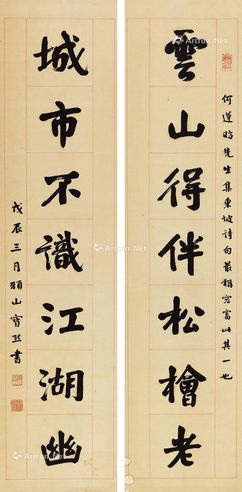 何蘧盷先生集東坡詩句最稱宏富此其一也
雲山得伴松檜老
城市不識江湖幽
戊辰三月頻山寶熙書